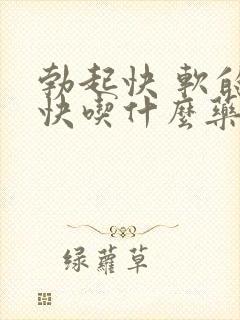 勃起快 軟的
快喫什麼藥
绿蘿草